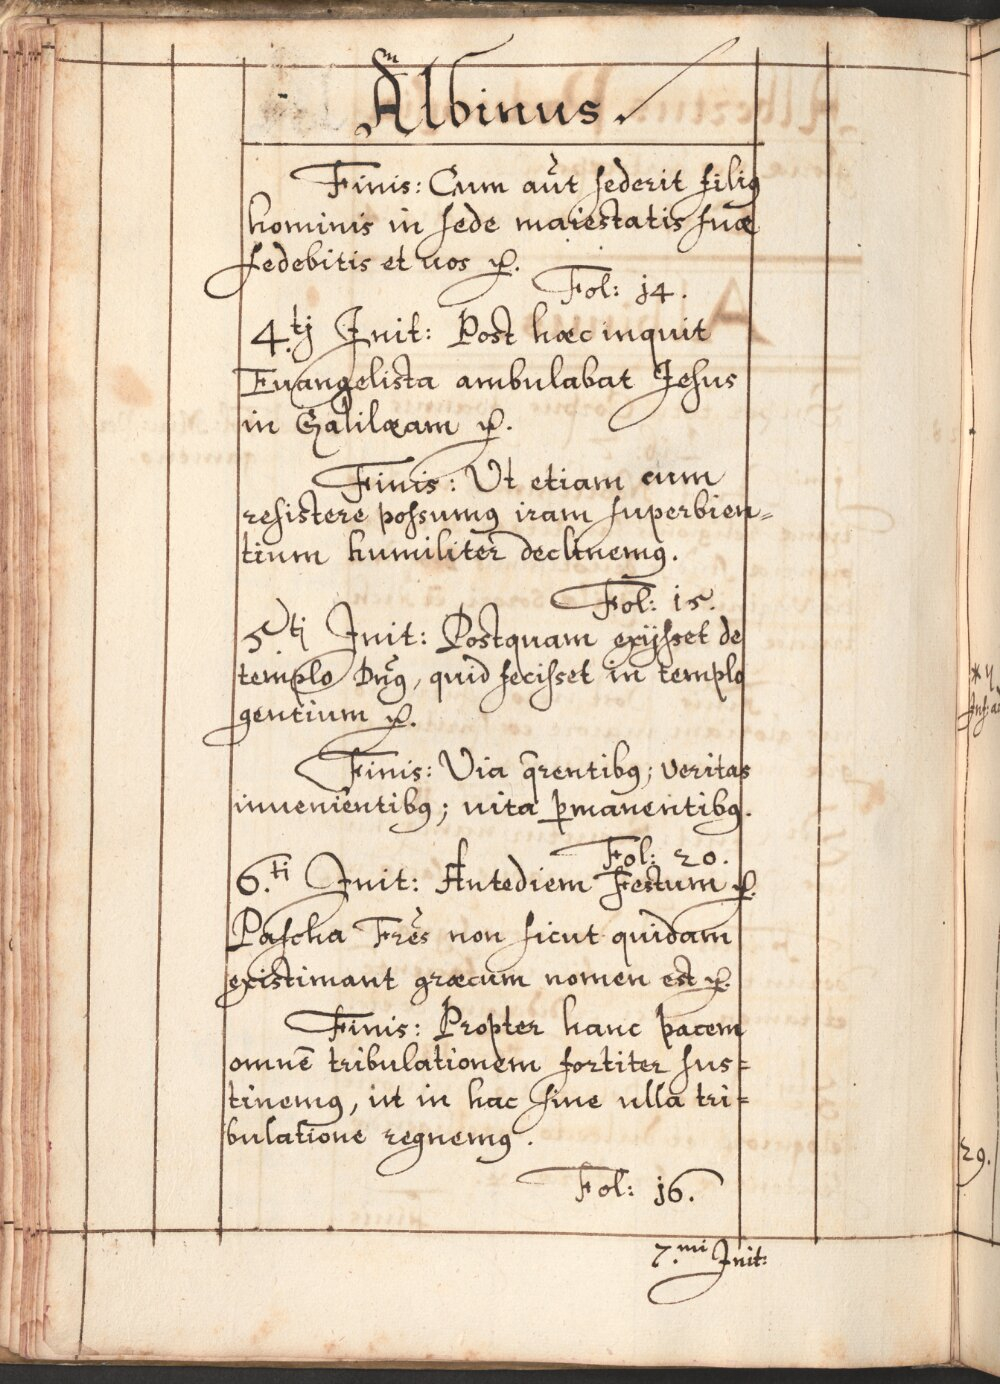 Albinus.
Finis: Cum aũt sederit filiꝰ
hominis in sede maiestatis suæ
sedebitis et uos ꝛc.
Fol: 14.
4.tj Init: Post hæc inquit
Euangelista ambulabat Jesus
in Galilæam ꝛc.
Finis: Ut etiam cum
resistere possumꝰ iram superbien=
tium humiliter declinemꝰ.
Fol: 15.
5.ti Init: Postquam exijsset de
templo Dñꝰ, quid fecisset in templo
gentium ꝛc.
Finis: Via q̄rentibꝰ; veritas
inuenientibꝰ; uita ꝑmanentibꝰ.
Fol: 20.
6.ti Init: Antediem Festum ꝛc.
Pascha Frẽs non sicut quidam
existimant græcum nomen est ꝛc.
Finis: Propter hanc pacem
omnẽ tribulationem fortiter sus=
tinemꝰ, ut in hac sine ulla tri=
bulatione regnemꝰ.
Fol: 16.
7.mi Init:
29.